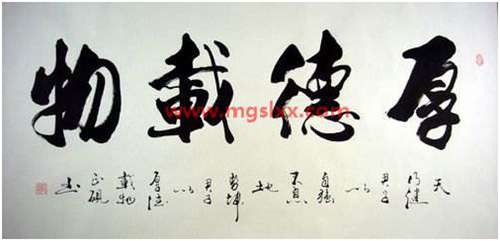 厚德載物
www.mgslxx.com
天
行健
君子
以
自强
不息
地
勢坤
君子
以
厚德
載物